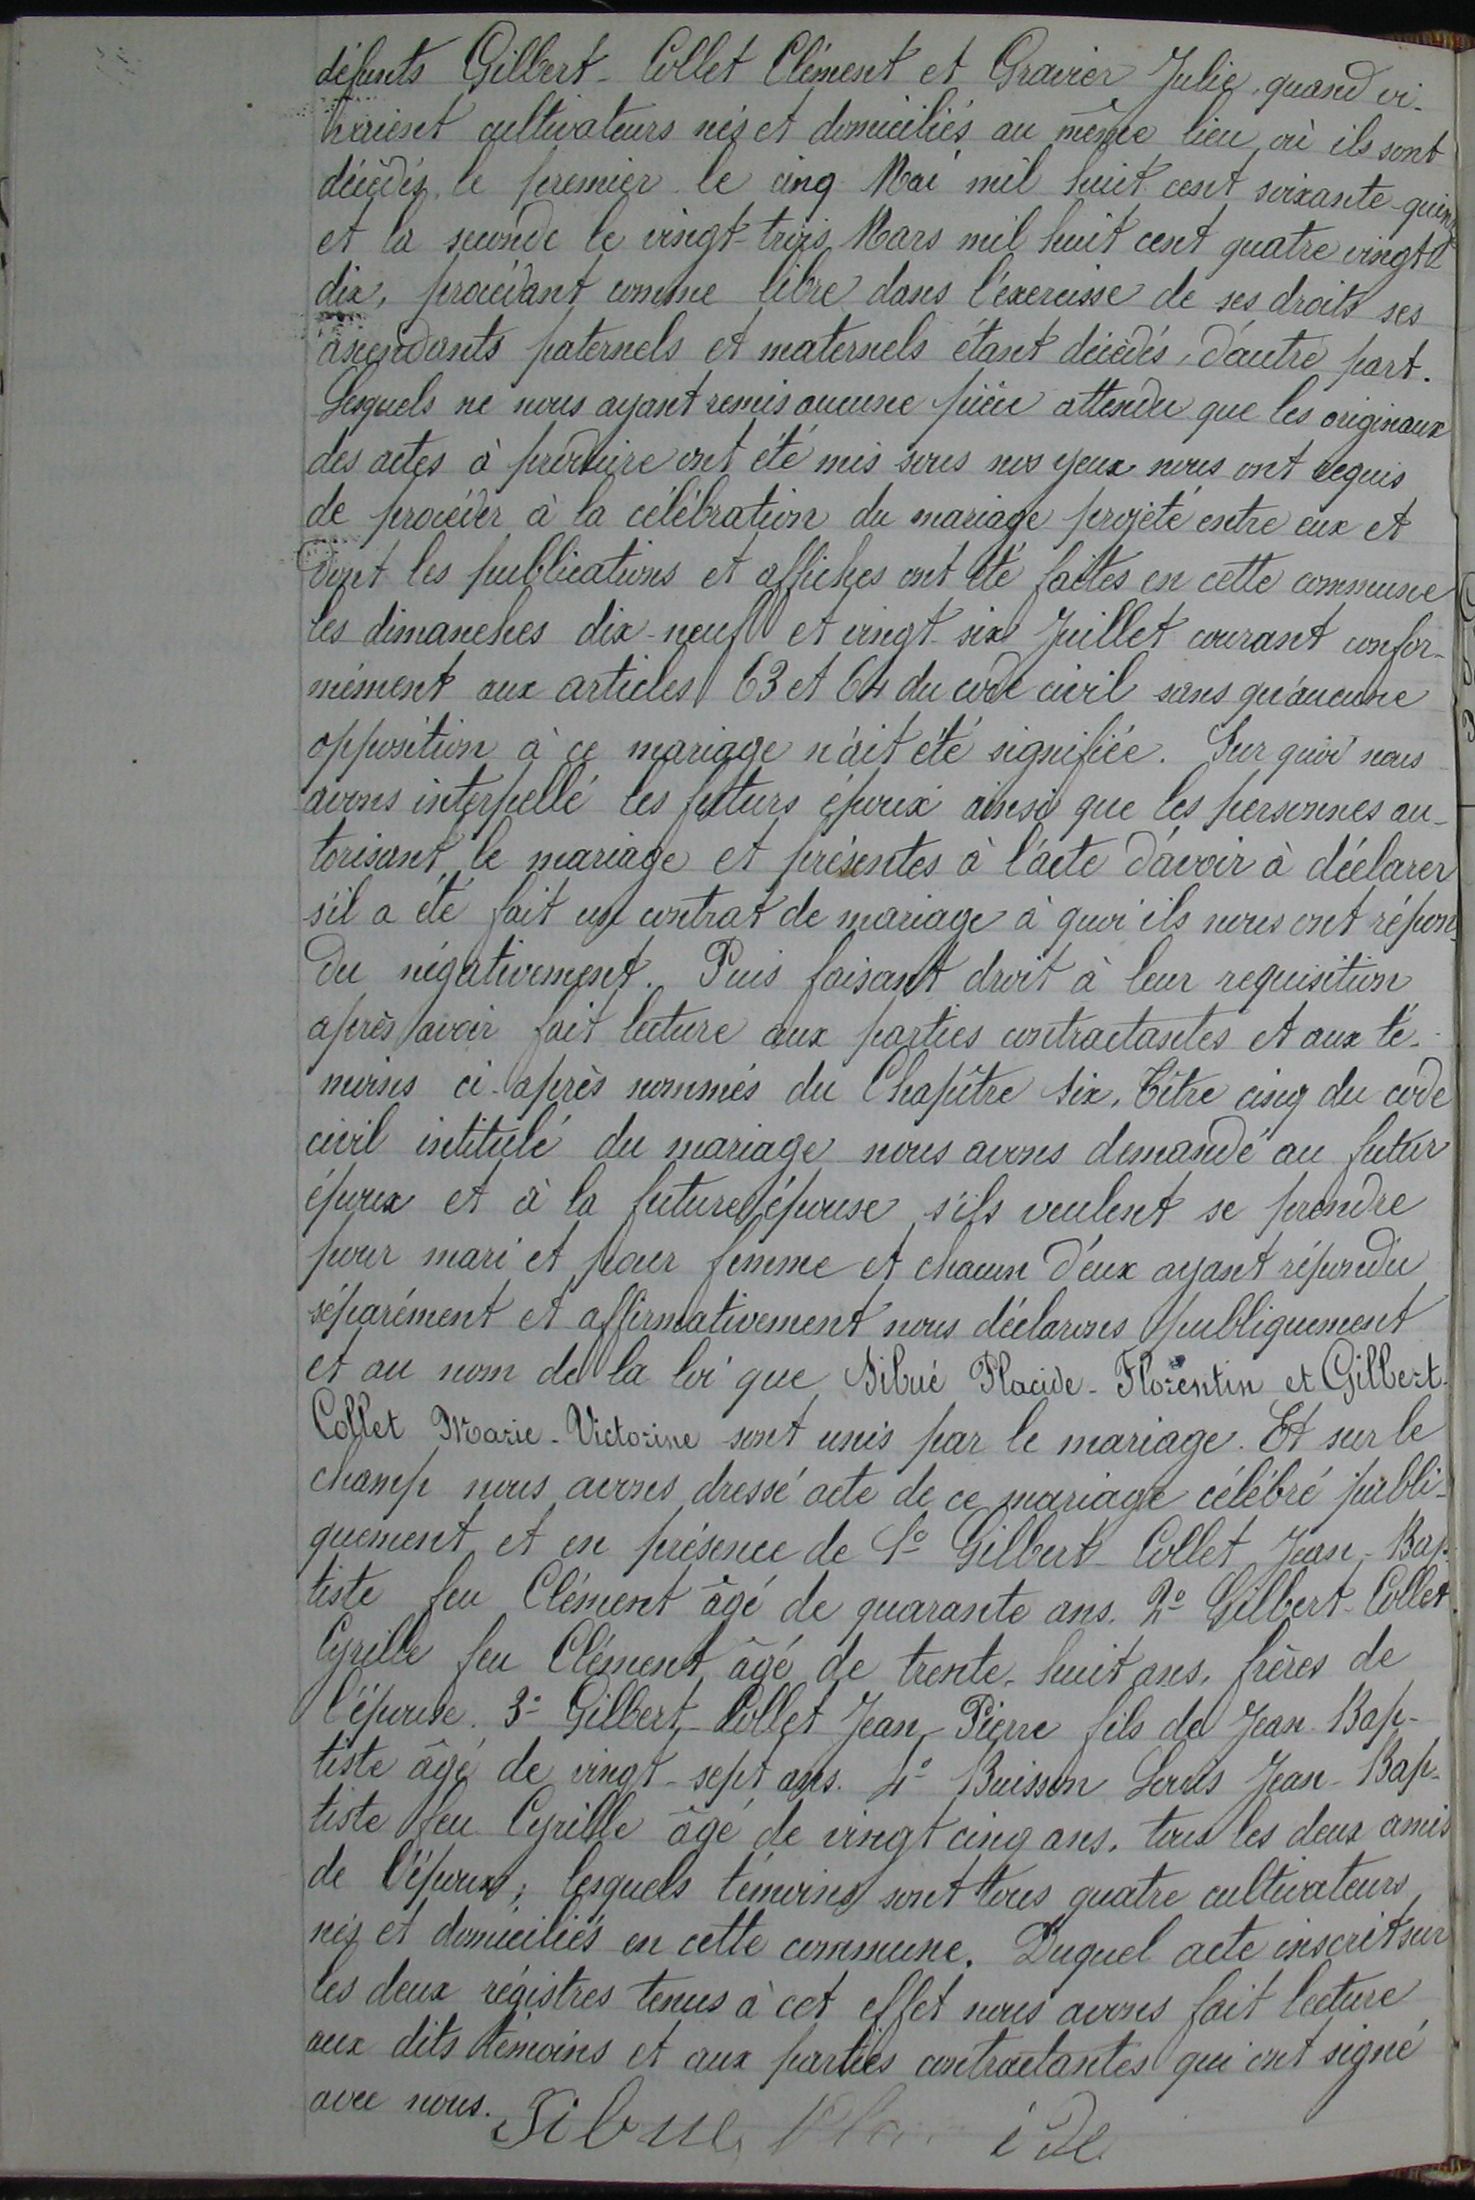 défunts Gilbert-Collet Clément et Gravier Julie, quand vi-
vaient cultivateurs nés et domiciliés au même lieu où ils sont
décédés, le premier le cinq Mai mil huit cent soixante-quinze
et la seconde le vingt-trois Mars mil huit cent quatre vingt
dix, procédant comme libre dans l'éxercisse de ses droits ses
ascendants paternels et maternels étant décédés, d'autre part.
Lesquels ne nous ayant remis aucune pièce attendu que les originaux
des actes à produire ont été mis sous nos yeux nous ont requis
de procéder à la célébration du mariage projeté entre eux et
dont les publications et affiches ont été faites en cette commune
les dimanches dix-neuf et vingt-six Juillet courant confor-
mément aux articles 63 et 64 du code civil sans qu'aucune
opposition à ce mariage n'ait été signifiée. Sur quoi nous
avons interpellé les futurs époux ainsi que les personnes au-
torisant le mariage et présentes à l'acte d'avoir à déclarer
s'il a été fait un contrat de mariage à quoi ils nous ont répon-
du négativement. Puis faisant droit à leur requisition
après avoir fait lecture aux parties contractantes et aux té-
moins ci-après nommés du Chapître six, Titre cinq du code
civil intitulé du mariage nous avons demandé au futur
époux et à la future épouse s'ils veulent se prendre
pour mari et pour femme et chacun d'eux ayant répondu
séparément et affirmativement nous déclarons publiquement
et au nom de la loi que Sibué Placide-Florentin et Gilbert-
Collet Marie-Victorine sont unis par le mariage. Et sur le
champ nous avons dressé acte de ce mariage célébré publi-
quement et en présence de 1º Gilbert-Collet Jean-Bap-
tiste feu Clément âgé de quarante ans. 2º Gilbert-Collet
Cyrille feu Clément âgé de trente-huit ans, frères de
l'épouse. 3º Gilbert-Collet Jean-Pierre fils de Jean-Bap-
tiste âgé de vingt-sept ans. 4º Buisson Louis Jean-Bap-
tiste feu Cyrille âgé de vingt cinq ans, tous les deux amis
de l'époux; lesquels témoins sont tous quatre cultivateurs
nés et domiciliés en cette commune. Duquel acte inscrit sur
les deux régistres tenus à cet effet nous avons fait lecture
aux dits témoins et aux parties contractantes qui ont signé
avec nous.
Sibue Placide